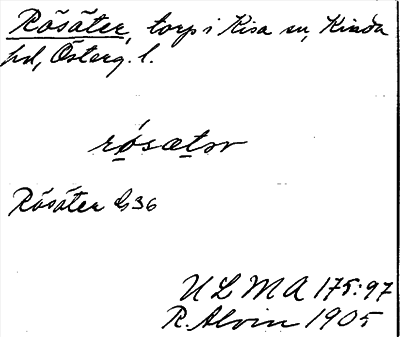 Rösäter, torp i Kisa sn, Kinda
hd, Österg. l.
rósætər
Rösäter G36
ULMA 175:97
R. Alvin 1905